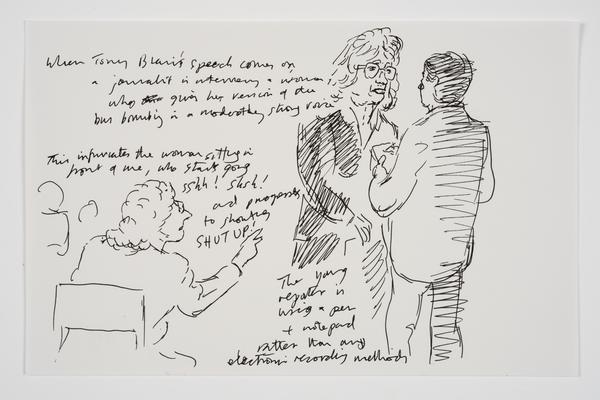 When Tony Blair's speech comes on
a journalist is interviewing a woman,
who gives her version of the
bus bombing in a moderately strong voice
This infuriates the woman sitting in
front of me, who starts going
sshh! Sssh!
and progresses
to shouting
SHUT UP!
The young
reporter is
using a pen
+ notepad
rather than any
electronic recording methods